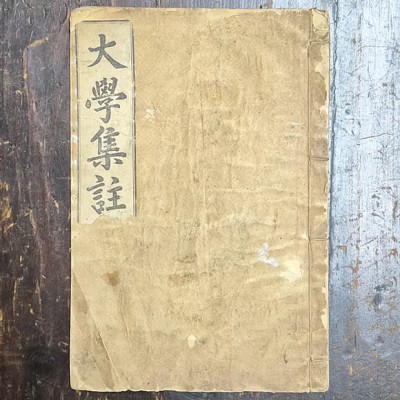 大學集註